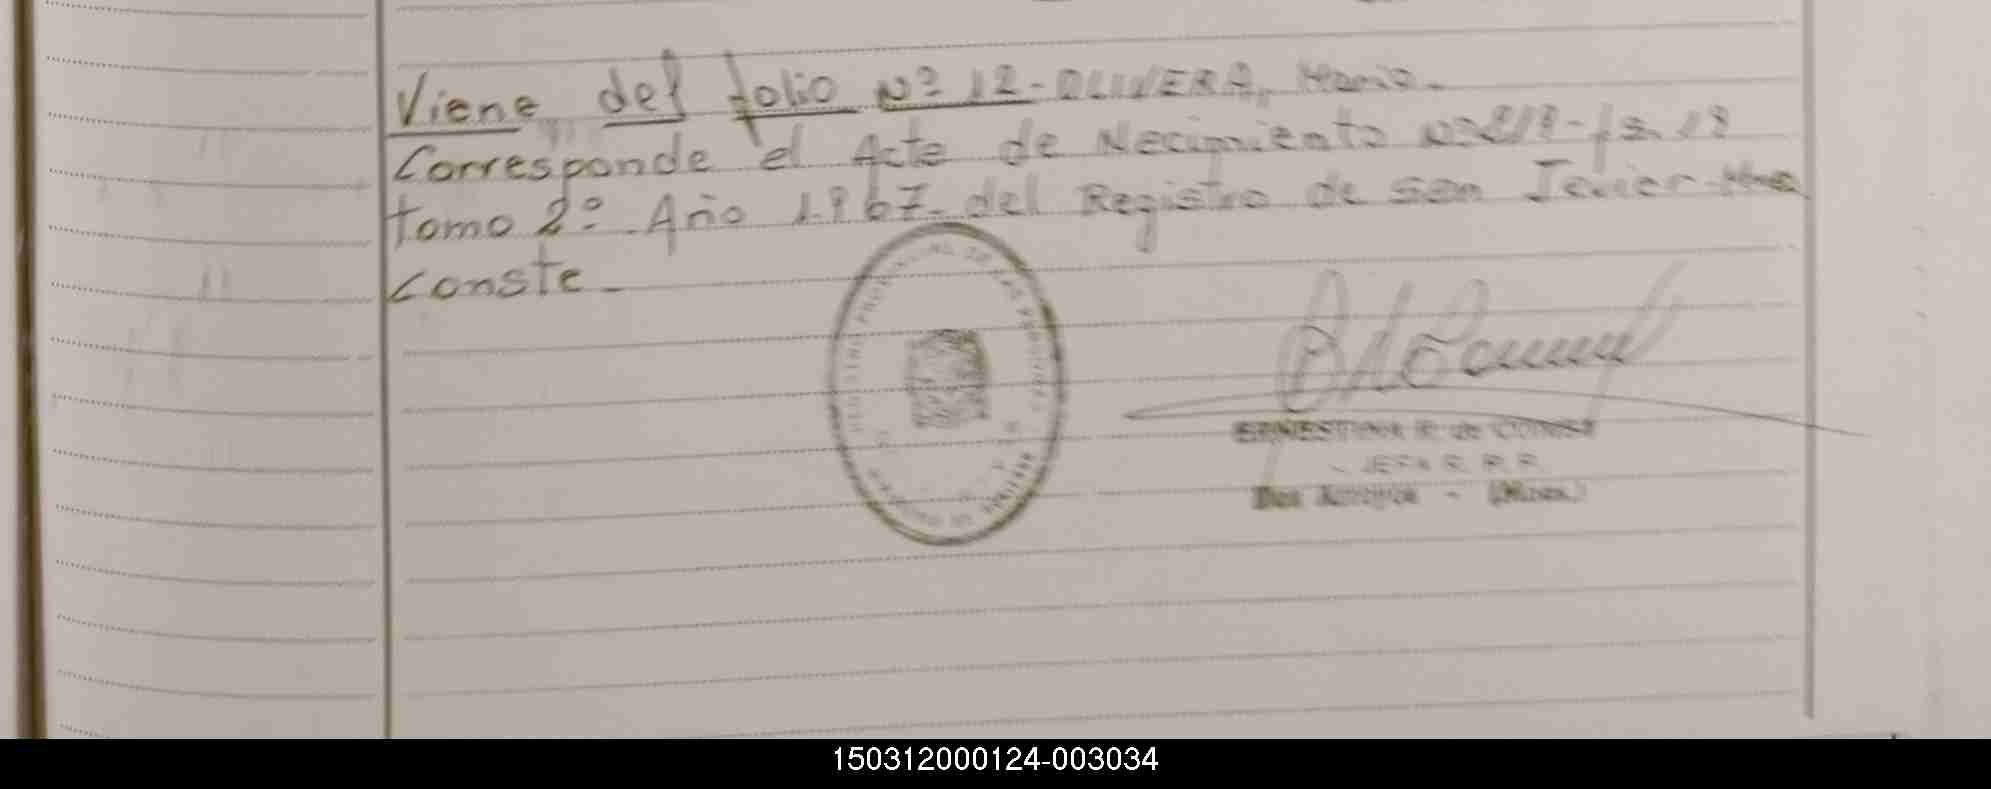 Viene del folio Nº 12-OLIVERA, Mario.
Corresponde el Acta de Nacimiento Nº 219-fs. 19
tomo 2º. Año 1.967. del Registro de San Javier-Mnes
conste-
ERNESTINA R. de
JEFA R. P. P.
Dos Arroyos - (Mnes.)
150312000124-003034